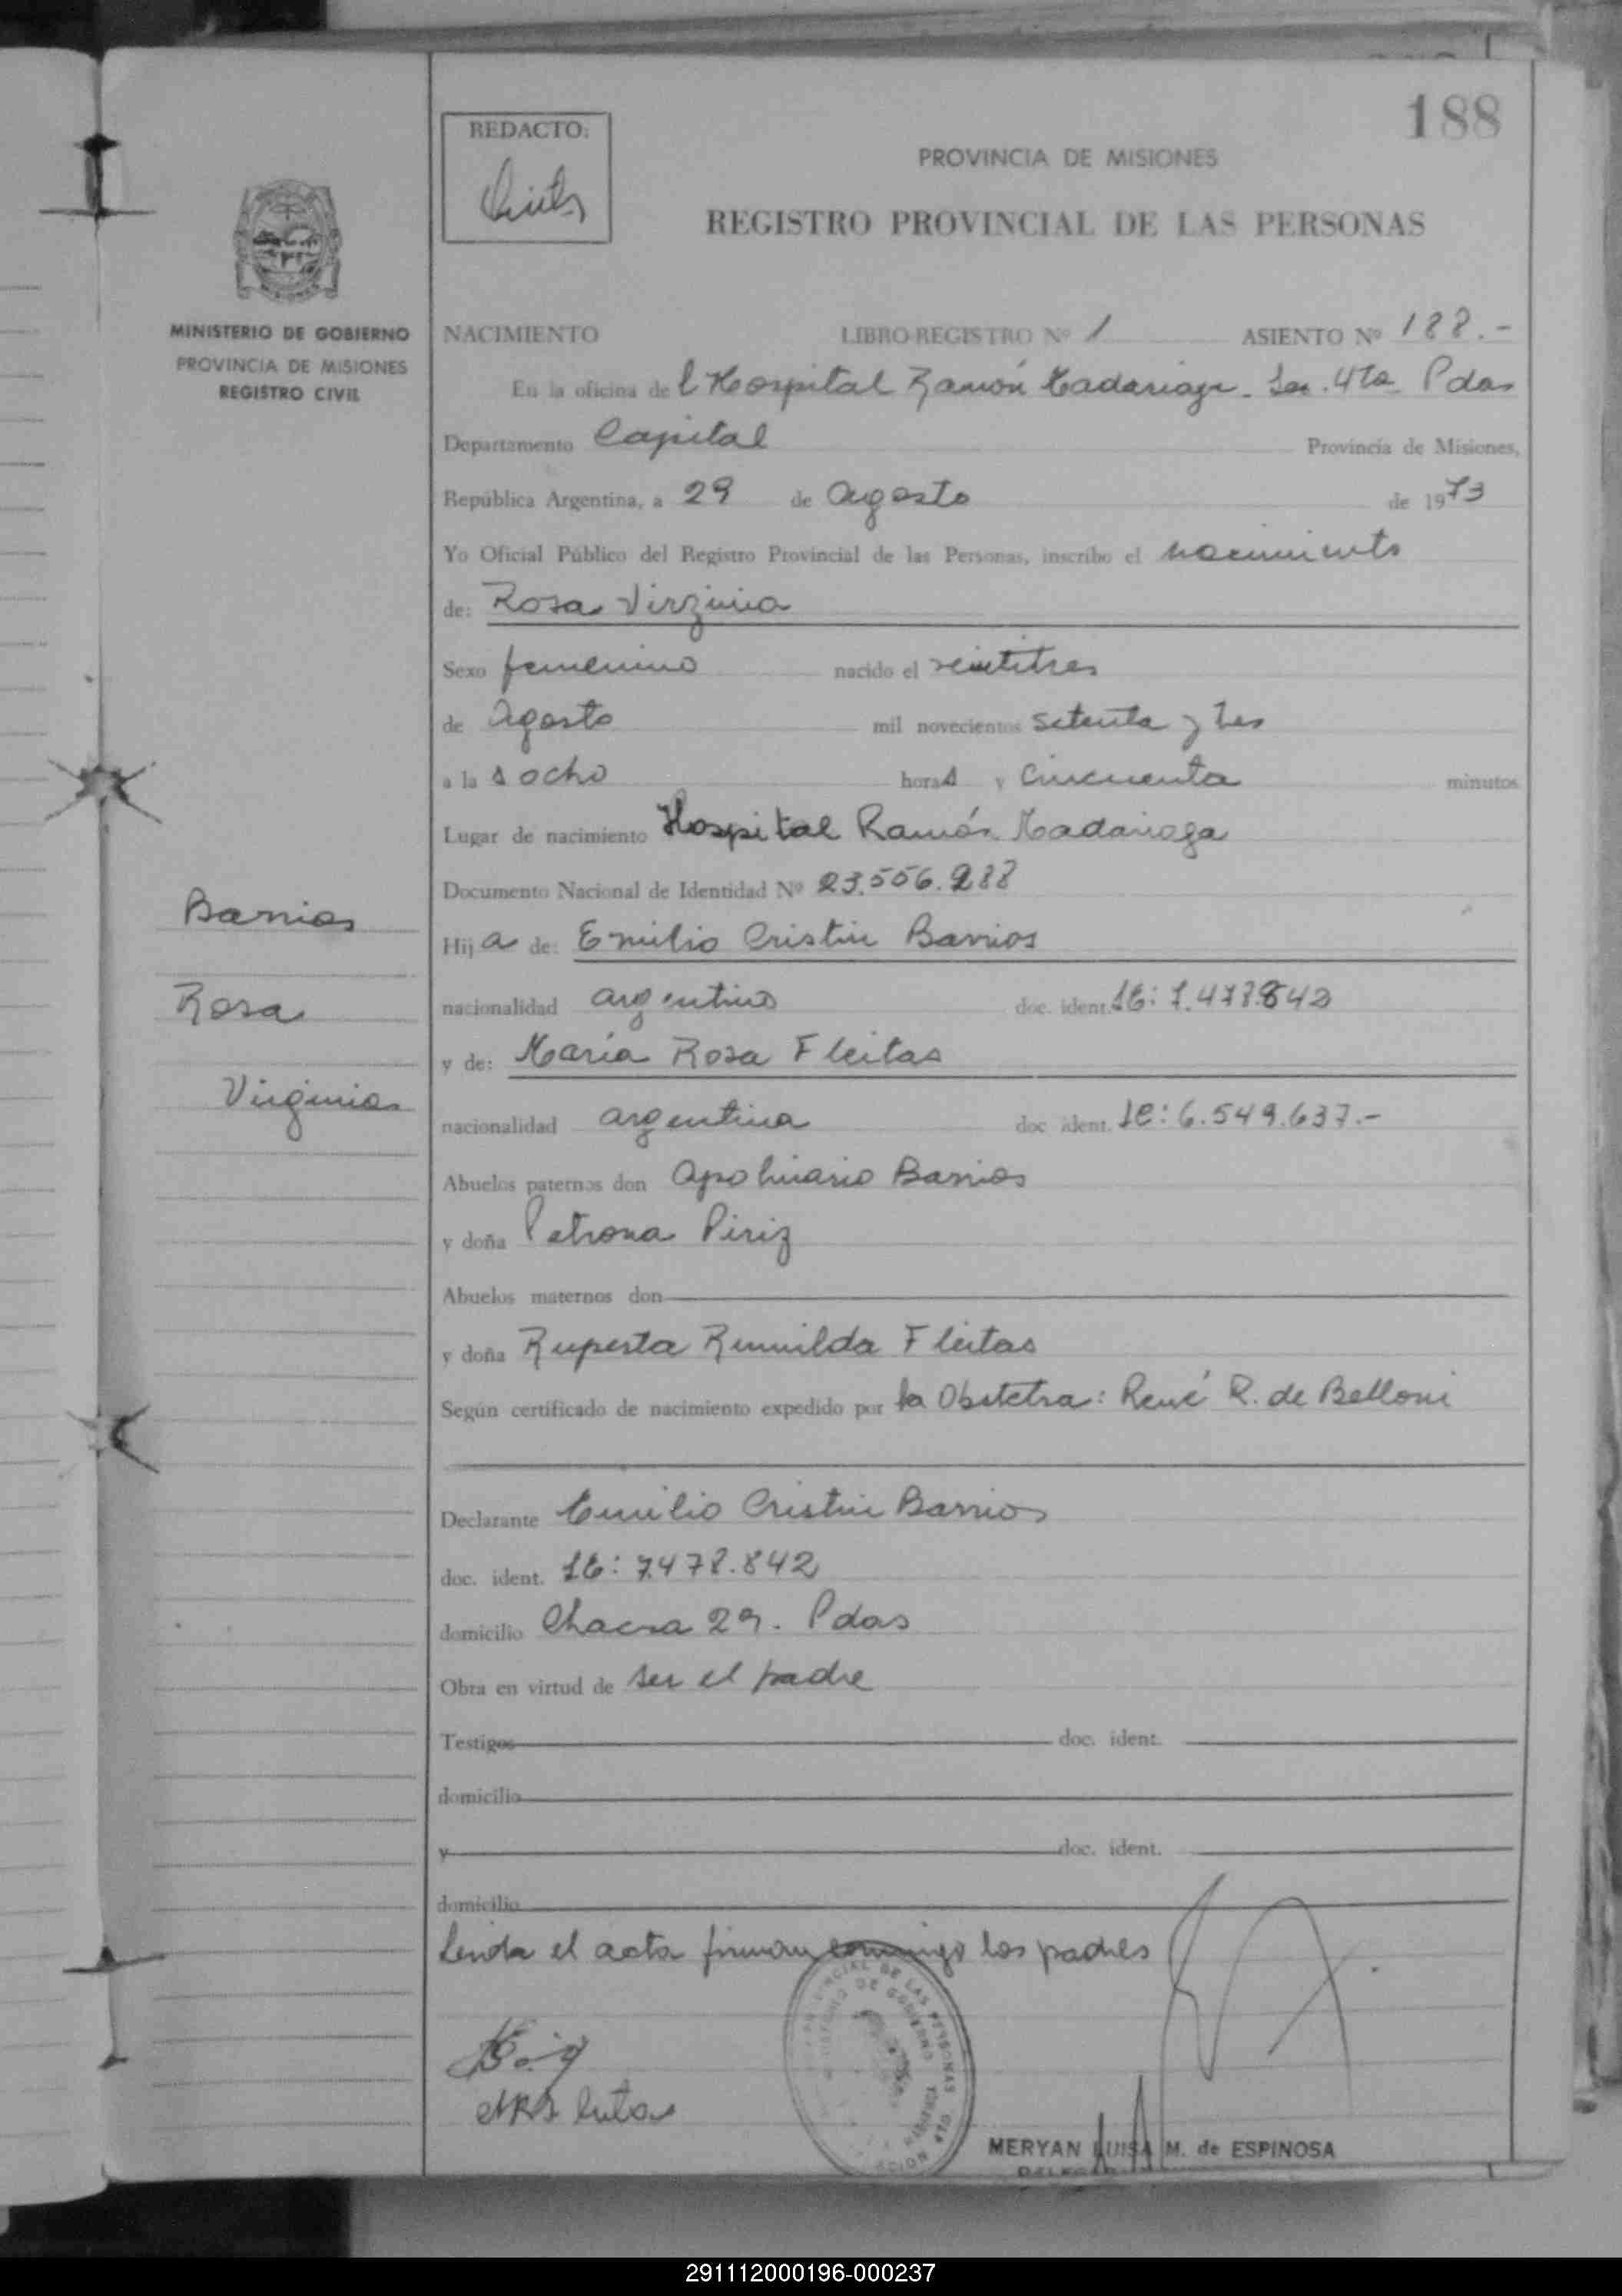 188
REDACTO:
PROVINCIA DE MISIONES
REGISTRO PROVINCIAL DE LAS PERSONAS
MINISTERIO DE GOBIERNO
PROVINCIA DE MISIONES
REGISTRO CIVIL
NACIMIENTO LIBRO REGISTRO Nº 1 ASIENTO Nº 188.-
En la oficina del Hospital Ramón Madariaga - Sec. 4ta Pdas
Departamento Capital Provincia de Misiones,
República Argentina, a 29 de agosto de 1973
Yo Oficial Público del Registro Provincial de las Personas, inscribo el nacimiento
de: Rosa Virginia
Sexo femenino nacido el veintitres
de Agosto mil novecientos setenta y tres
a las ocho horas y cincuenta minutos
Lugar de nacimiento Hospital Ramón Madariaga
Documento Nacional de Identidad Nº 23.506.288
Barrios
Hija de: Emilio Cristin Barrios
Rosa
nacionalidad argentino doc. ident. LE: 7.478.842
y de: María Rosa Fleitas
Virginia
nacionalidad argentina doc. ident. LC: 6.549.637.-
Abuelos paternos don Apolinario Barrios
y doña Petrona Piriz
Abuelos maternos don
y doña Ruperta Remilda Fleitas
Según certificado de nacimiento expedido por la Obstetra: René R. de Belloni
Declarante Emilio Cristin Barrios
doc. ident. LE: 7.478.842
domicilio Chacra 29. Pdas
Obra en virtud de ser el padre
Testigos doc. ident.
domicilio
y doc. ident.
domicilio
Leída el acta firman conmigo los padres
MERYAN LUISA M. de ESPINOSA
291112000196-000237